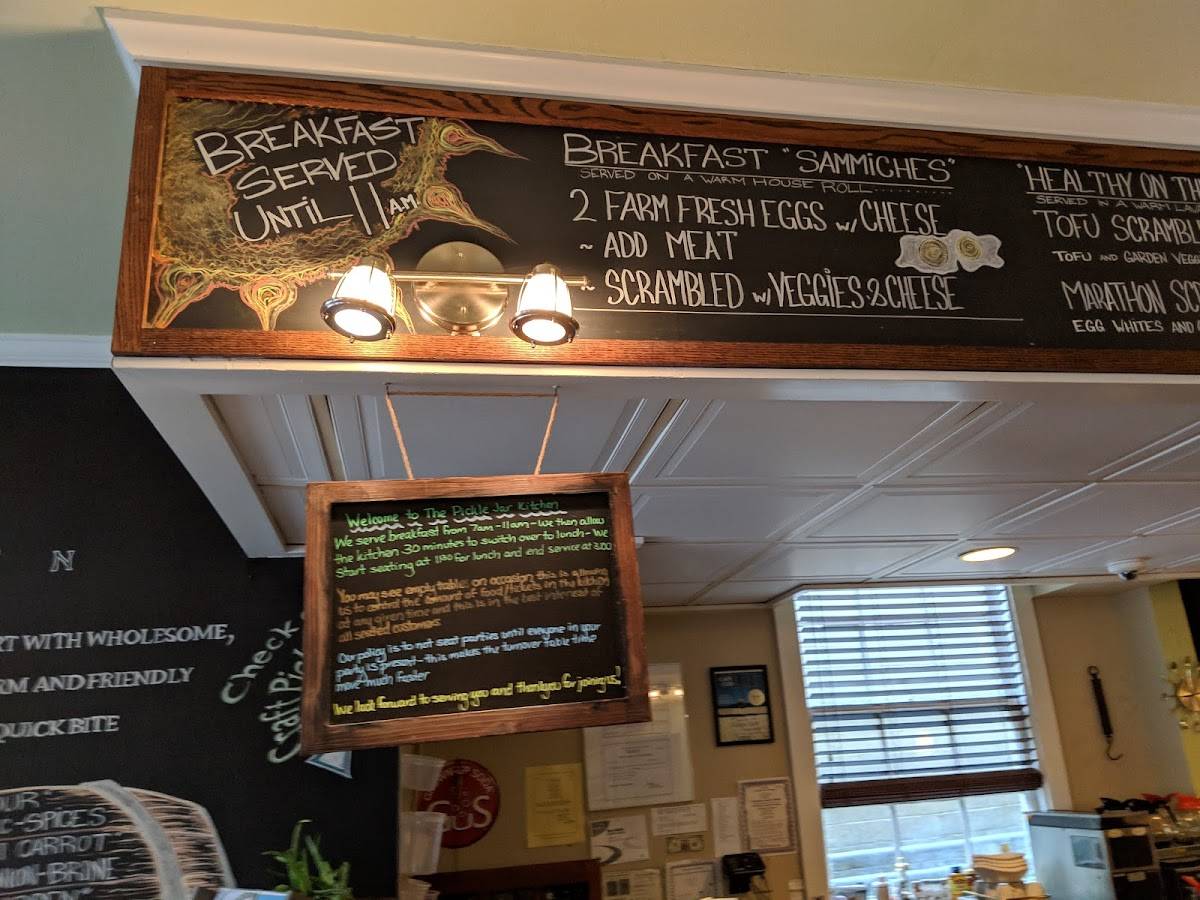 BREAKFAST
SERVED
UNTIL 11AM
BREAKFAST "SAMMiCHES"
SERVED ON A WARM HOUSE ROLL..........
2 FARM FRESH EGGS w/ CHEESE
~ ADD MEAT
~ SCRAMBLED w/ VEGGiES & CHEESE
"HEALTHY ON
SERVED IN A WARM
TOFU
TOFU AND GARDEN
MARATHON
EGG WHITES AND
Welcome to The Pickle Jar Kitchen
We serve breakfast from 7am-11am-We then allow
the kitchen 30 minutes to switch over to lunch-We
Start seating at 1130 for lunch and end service at 3:00
You may see empty tables on occasion, this is allowing
us to control the amount of food/tickets in the kitchen
at any given time and this is in the best interest of
all seated customers
Our policy is to not seat parties until everyone in your
party is present-this makes the turnover table time
move much faster
We look forward to serving you and thankyou for joining us!
N
WITH WHOLESOME,
AND FRIENDLY
QUICK BITE
Check
Craft
SPICES
CARROT
BRINE